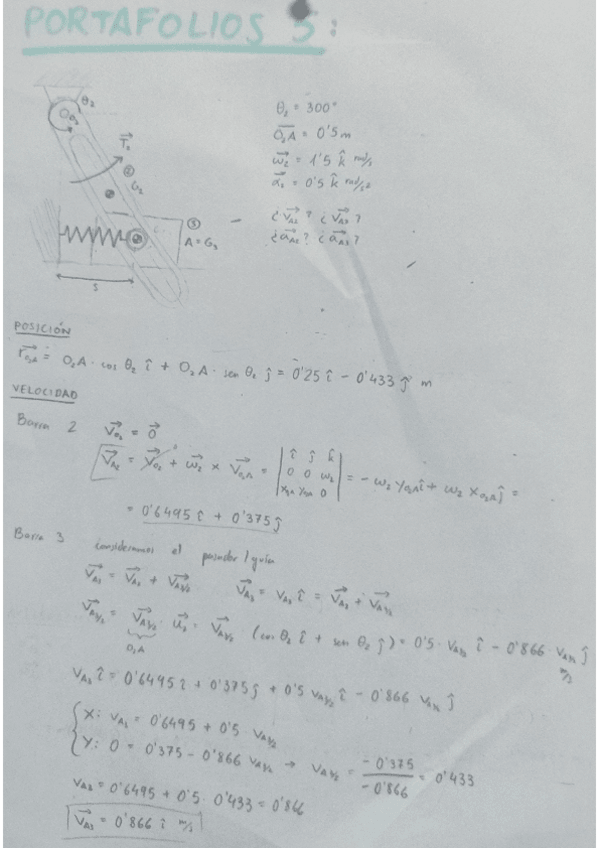 PORTAFOLIOS 5:
θ₂
O₂
T₂
②
G₂
③
A=G₃
s
θ₂ = 300°
O₂A = 0'5 m
ω₂ = 1'5 k̂ rad/s
α₂ = 0'5 k̂ rad/s²
¿v_A2? ¿v_A3?
¿a_A2? ¿a_A3?
POSICIÓN
r_O2A = O₂A · cos θ₂ î + O₂A · sen θ₂ ĵ = 0'25 î - 0'433 ĵ m
VELOCIDAD
Barra 2 v_O2 = 0
v_A2 = v_O2 + ω₂ × v_O2A = | î ĵ k̂ ; 0 0 ω₂ ; x_O2A y_O2A 0 | = -ω₂ y_O2A î + ω₂ x_O2A ĵ =
= 0'6495 î + 0'375 ĵ
Barra 3 consideramos el pasador/guía
v_A3 = v_A2 + v_A3/2 v_A3 = v_A3 î = v_A2 + v_A3/2
v_A3/2 = v_A3/2 · u₂ = v_A3/2 (cos θ₂ î + sen θ₂ ĵ) = 0'5 · v_A3/2 î - 0'866 · v_A3/2 ĵ m/s
O₂A
v_A3 î = 0'6495 î + 0'375 ĵ + 0'5 v_A3/2 î - 0'866 v_A3/2 ĵ
X: v_A3 = 0'6495 + 0'5 v_A3/2
Y: 0 = 0'375 - 0'866 v_A3/2 → v_A3/2 = -0'375 / -0'866 = 0'433
v_A3 = 0'6495 + 0'5 · 0'433 = 0'866
v_A3 = 0'866 î m/s